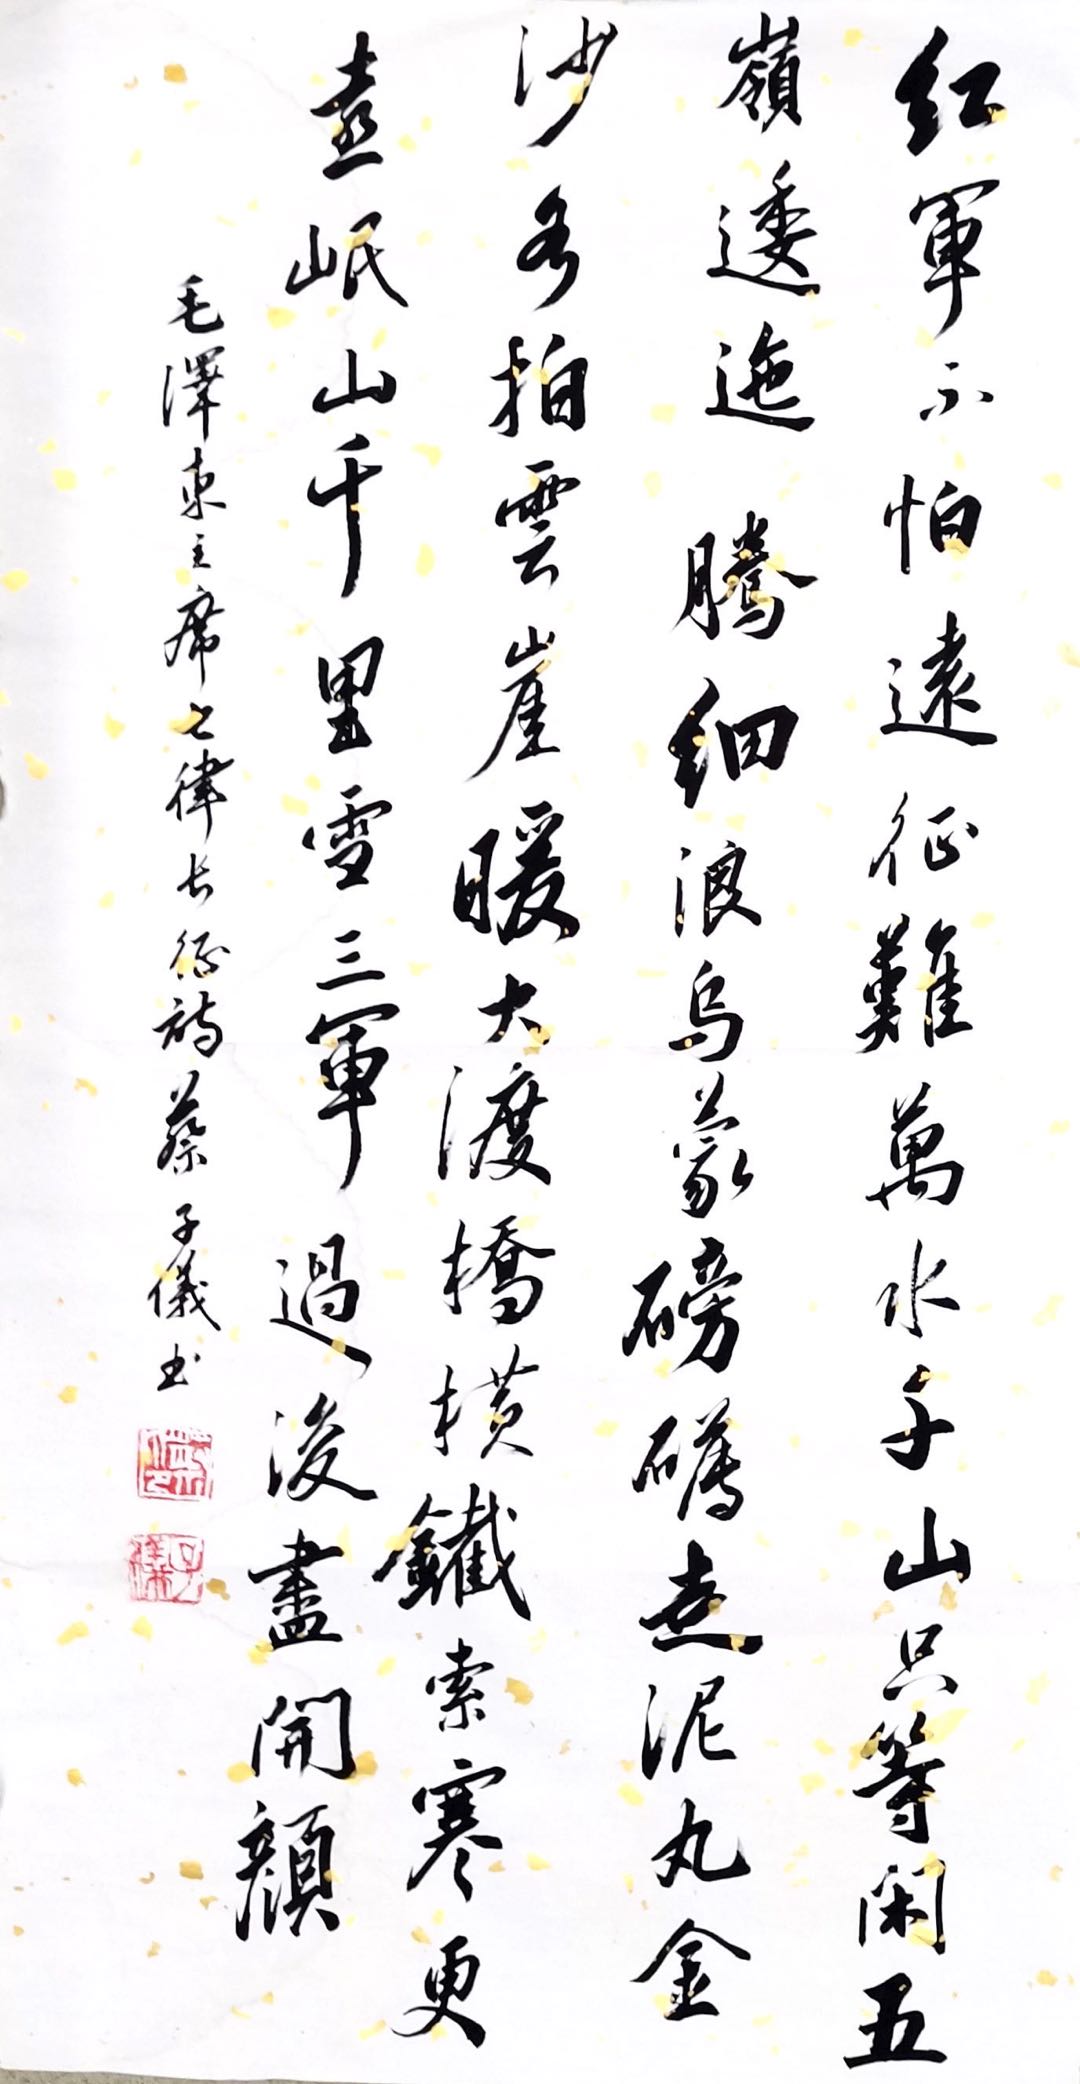 紅軍不怕遠征難萬水千山只等閑五
嶺逶迤騰細浪烏蒙磅礴走泥丸金
沙水拍雲崖暖大渡橋橫鐵索寒更
喜岷山千里雪三軍過後盡開顏
毛澤東主席七律长征詩蔡子儀书
蔡印
子儀